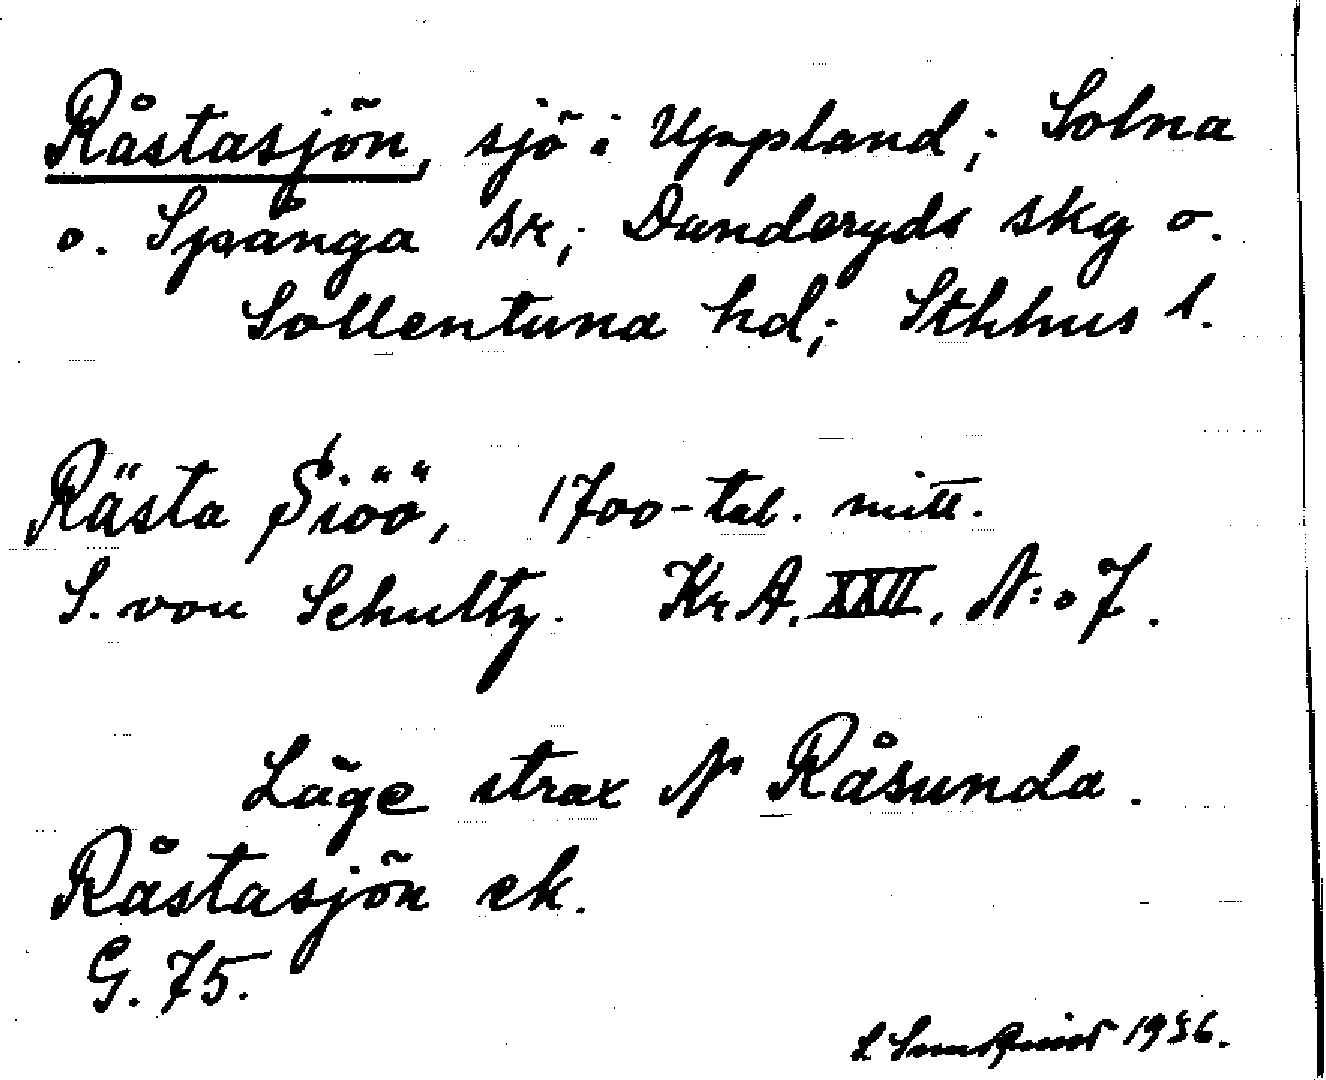 Råstasjön, sjö i Uppland; Solna
o. Spånga sk; Danderyds skg o.
Sollentuna hd; Sthlms l.
Rästa Siöö, 1700-tal. mitt.
S. von Schultz. Kr A. XXII. N:o 7.
Läge strax N Råsunda.
Råstasjön ek.
G. 75.
1936.